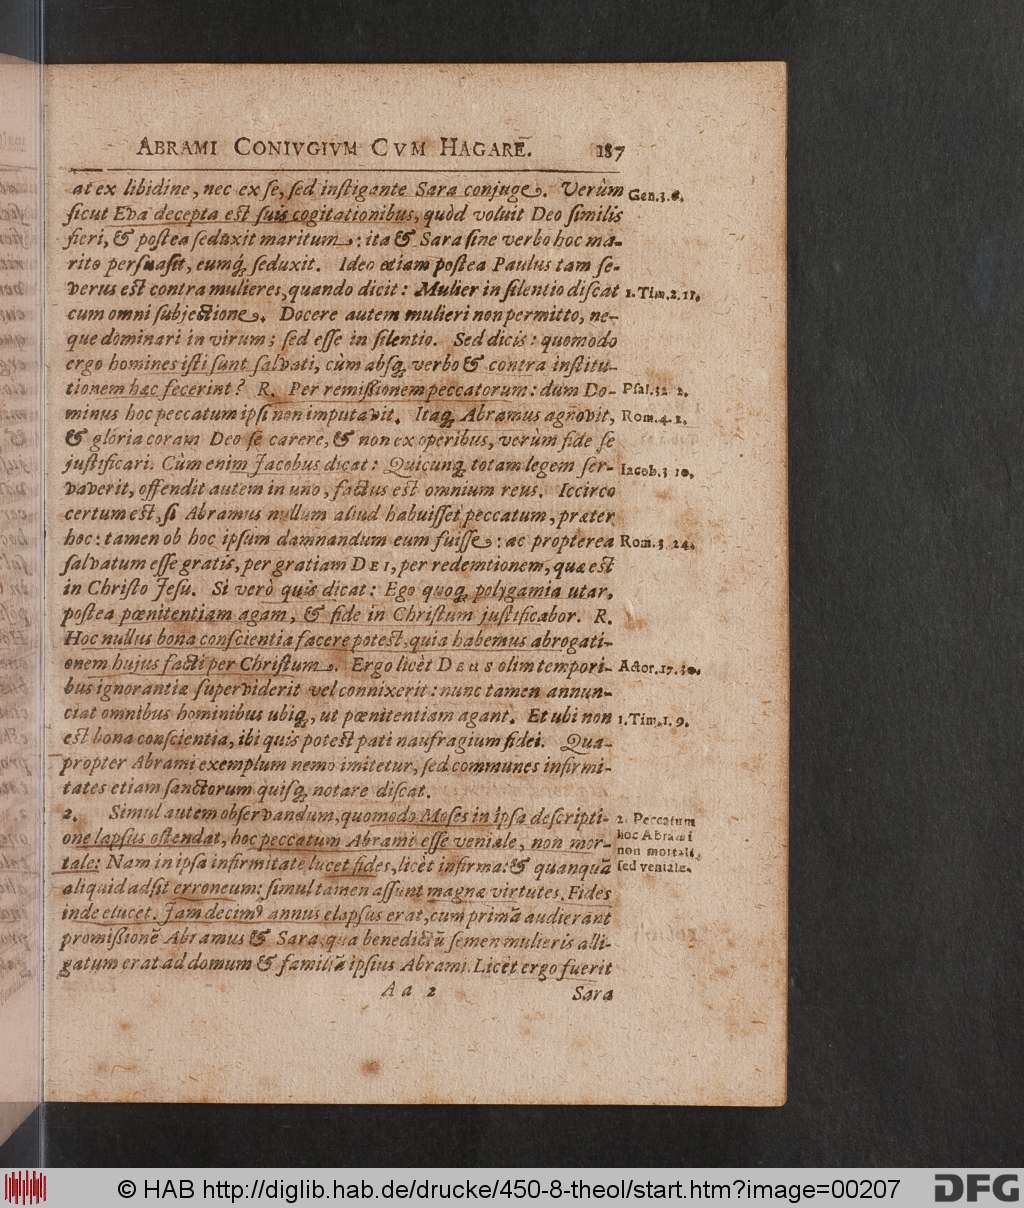 ABRAMI CONIVGIVM CVM HAGARE. 187
at ex libidine, nec ex se, sed instigante Sara conjuge. Verùm Gen.3.6.
sicut Eva decepta est suis cogitationibus, quòd voluit Deo similis
fieri, & postea seduxit maritum: ita & Sara sine verbo hoc ma-
rito persuasit, eumq́; seduxit. Ideo etiam postea Paulus tam se-
verus est contra mulieres, quando dicit: Mulier in silentio discat 1. Tim.2.11.
cum omni subjectione. Docere autem mulieri non permitto, ne-
que dominari in virum; sed esse in silentio. Sed dicis: quomodo
ergo homines isti sunt salvati, cùm absq; verbo & contra institu-
tionem hæc fecerint? R. Per remißionem peccatorum: dum Do- Psal.32 2.
minus hoc peccatum ipsi non imputavit. Itaq; Abramus agnovit, Rom.4.2.
& gloria coram Deo se carere, & non ex operibus, verùm fide se
justificari. Cùm enim Jacobus dicat: Quicunq; totam legem ser- Iacob.3 10.
vaverit, offendit autem in uno, factus est omnium reus. Iccirco
certum est, si Abramus nullum aliud habuisset peccatum, præter
hoc: tamen ob hoc ipsum damnandum eum fuisse: ac propterea Rom.3 24.
salvatum esse gratis, per gratiam DEI, per redemtionem, quæ est
in Christo Jesu. Si verò quis dicat: Ego quoq; polygamia utar,
postea pœnitentiam agam, & fide in Christum justificabor. R.
Hoc nullus bona conscientia facere potest, quia habemus abrogati-
onem hujus facti per Christum. Ergo licèt DEUS olim tempori- Actor.17.30.
bus ignorantiæ superviderit vel connixerit: nunc tamen annun-
ciat omnibus hominibus ubiq;, ut pœnitentiam agant. Et ubi non 1.Tim.1.9.
est bona conscientia, ibi quis potest pati naufragium fidei. Qua-
propter Abrami exemplum nemo imitetur, sed communes infirmi-
tates etiam sanctorum quisq; notare discat.
2. Simul autem observandum, quomodo Moses in ipsa descripti- 2. Peccatum
one lapsus ostendat, hoc peccatum Abrami esse veniale, non mor- hoc Abrami
tale: Nam in ipsa infirmitate lucet fides, licèt infirma: & quanquã non mortale, sed veniale.
aliquid adsit erroneum: simul tamen assunt magnæ virtutes. Fides
inde elucet. Jam decimꝰ annus elapsus erat, cum primã audierant
promißionẽ Abramus & Sara, qua benedictũ semen mulieris alli-
gatum erat ad domum & familiã ipsius Abrami. Licèt ergo fuerit
A a 2 Sara
© HAB http://diglib.hab.de/drucke/450-8-theol/start.htm?image=00207 DFG